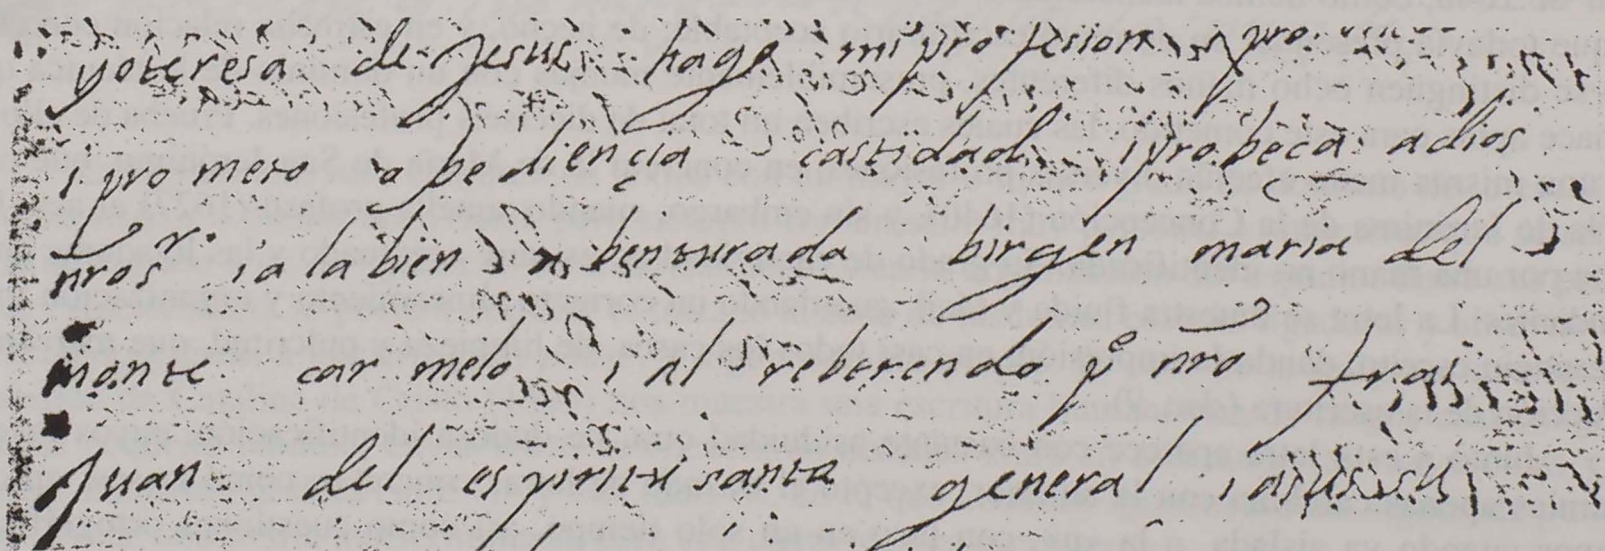 yo teresa de Jesus hago mi profesion
i prometo obediençia castidad i probeça a dios
nros.r i a la bien abenturada birgen maria del
monte carmelo i al reberendo p.o nro frai
Juan del espiritu santo general i a sus su